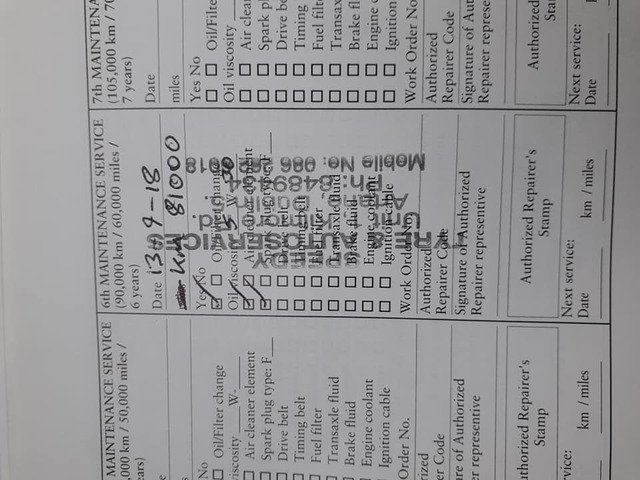 7th MAINTENANCE
(105,000 km / 70
7 years)
Date
miles
Yes No
Oil/Filte
Oil viscosity
Air cleaner
Spark plug
Drive belt
Timing
Fuel filter
Transaxle
Brake fluid
Engine c
Ignition
Work Order No
Authorized
Repairer Code
Signature of Aut
Repairer represe
Authorized
Stamp
Next service:
Date
6th MAINTENANCE SERVICE
(90,000 km / 60,000 miles /
6 years)
Date 13-9-18
km 81000
Yes No
Oil/Filter change
Oil viscosity 5 W- 30
Air cleaner element
Spark plug type: F
Drive belt
Timing belt
Fuel Filter
Transaxle fluid
Brake fluid
Engine coolant
Ignition cable
Work Order No.
Authorized
Repairer Code
Signature of Authorized
Repairer representative
Authorized Repairer's
Stamp
Next service:
Date km / miles
SPEEDY
TYRE & AUTOSERVICES
Mobile No. 086
MAINTENANCE SERVICE
,000 km / 50,000 miles /
ears)
No
Oil/Filter change
viscosity W-
Air cleaner element
Spark plug type: F
Drive belt
Timing belt
Fuel filter
Transaxle fluid
Brake fluid
Engine coolant
Ignition cable
Order No.
orized
er Code
ure of Authorized
er representative
uthorized Repairer's
Stamp
vice:
km / miles